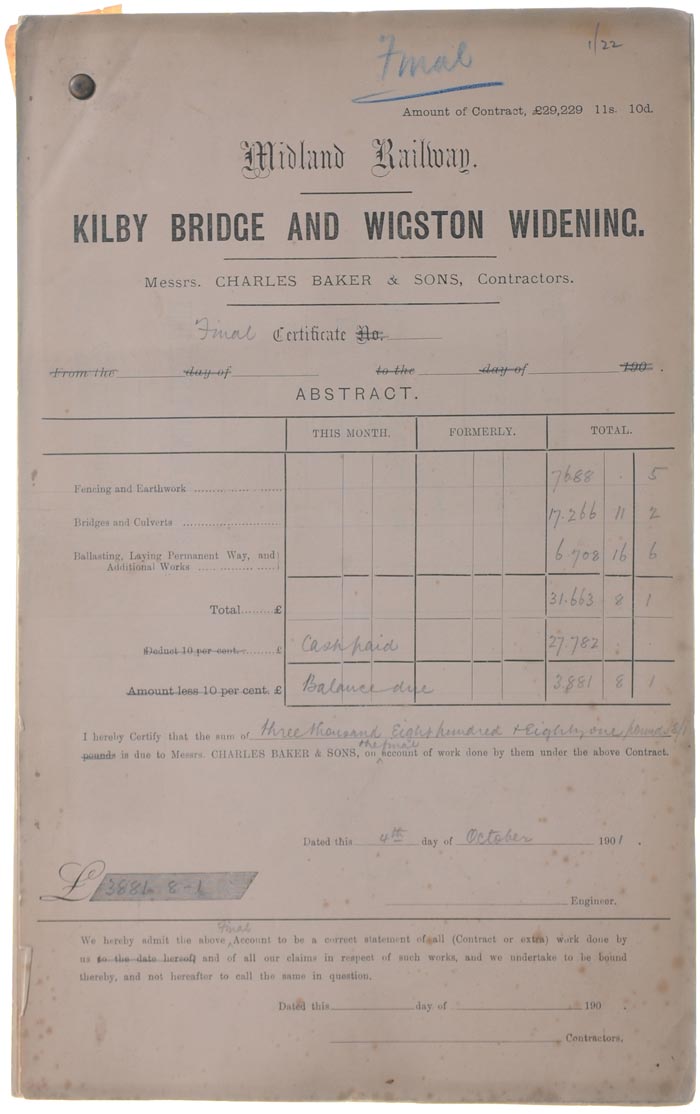 Final
1/22
Amount of Contract, £29,229 11s. 10d.
Midland Railway.
KILBY BRIDGE AND WIGSTON WIDENING.
Messrs. CHARLES BAKER & SONS, Contractors.
Final Certificate No:
From the day of to the day of 190 .
ABSTRACT.
THIS MONTH. FORMERLY. TOTAL.
Fencing and Earthwork 7688 . 5
Bridges and Culverts 17.266 11 2
Ballasting, Laying Permanent Way, and
Additional Works 6.708 16 6
Total........£ 31.663 8 1
Deduct 10 per cent. £ Cash paid 27.782 . .
Amount less 10 per cent. £ Balance due 3.881 8 1
I hereby Certify that the sum of three thousand Eight hundred & Eighty one pounds 8/1
the final
pounds is due to Messrs. CHARLES BAKER & SONS, on account of work done by them under the above Contract.
Dated this 4th day of October 1901 .
£ 3881. 8-1
Engineer.
Final
We hereby admit the above Account to be a correct statement of all (Contract or extra) work done by
us to the date hereof, and of all our claims in respect of such works, and we undertake to be bound
thereby, and not hereafter to call the same in question.
Dated this day of 190 .
Contractors.